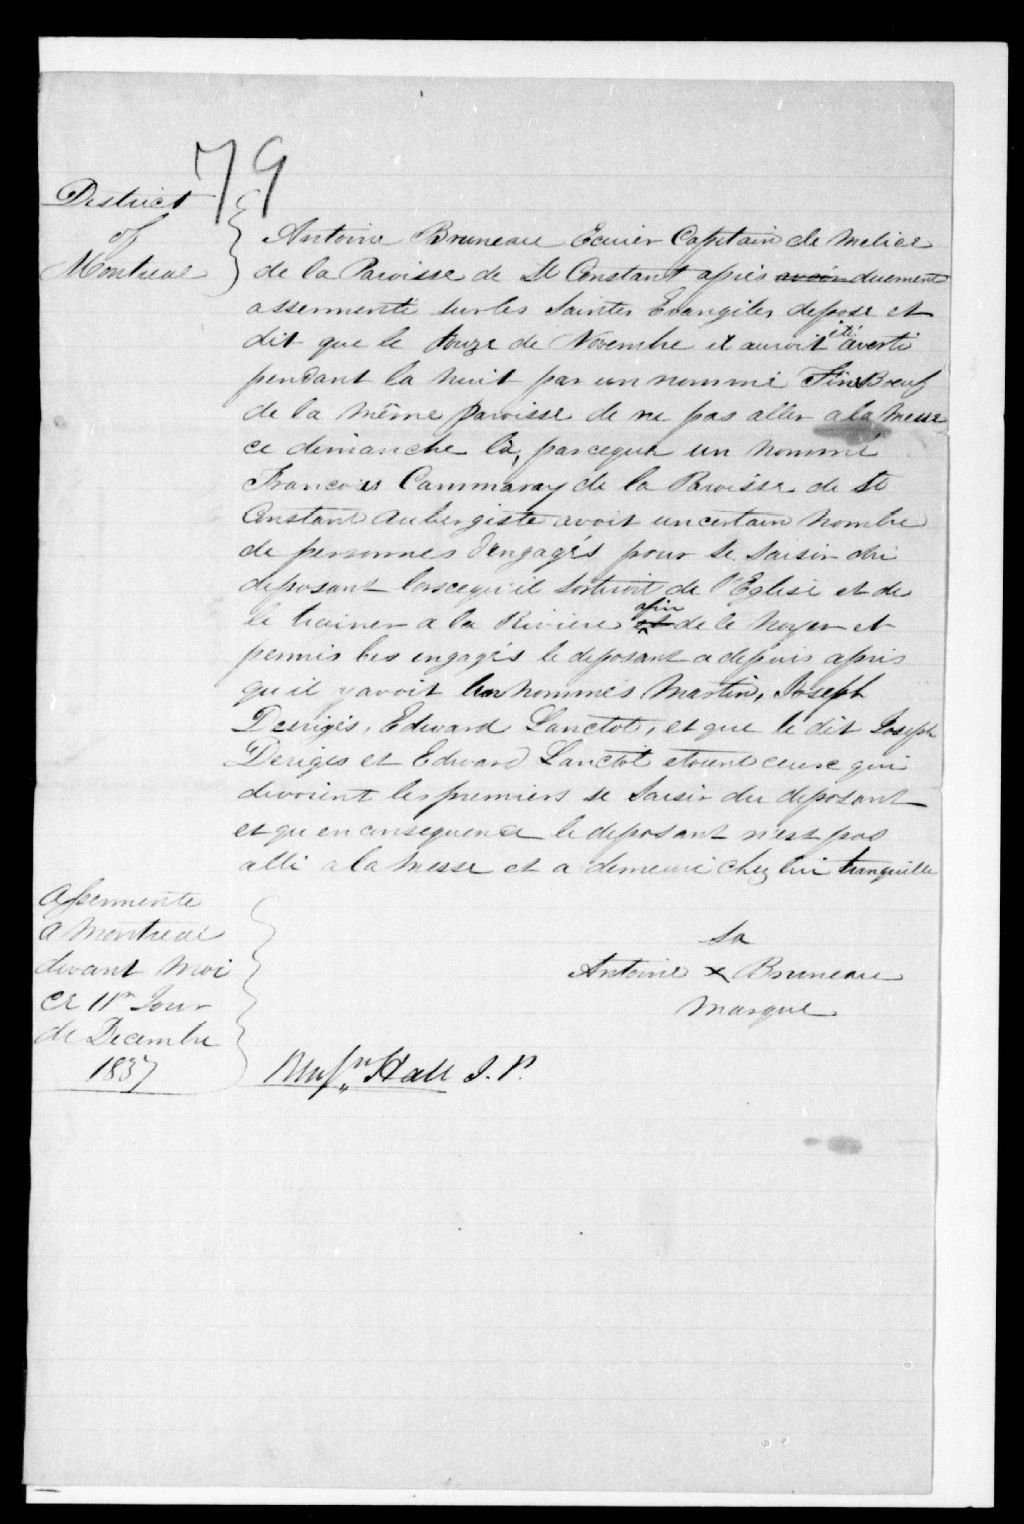 79
District
of
Montreal
Antoine Bruneau Ecuier Capitain de Milice
de la Paroisse de St Constant après avoir duement
assermenté sur les Saintes Evangiles depose et
dit que le douze de Novembre il auroit été averti
pendant la nuit par un nommé Fin Boeuf
de la même Paroisse de ne pas aller a la Messe
ce dimanche là, parceque un nommé
Francois Cammaray de la Paroisse de St
Constant Aubergiste avoit un certain nombre
de personnes d'engagés pour se saisir du
deposant lorscequ'il sortiroit de l'Eglise et de
le trainer a la Riviere et afin de le Noyer et
permis les engagés le deposant a depuis apris
qu'il y avoit les nommés Martin, Joseph
Derigés, Edward Lanctot, et que le dit Joseph
Deriges et Edward Lanctot etoient ceux qui
devoient les premiers se Saisir du deposant
et qu'en consequence le deposant n'est pas
allé a la Messe et a demeuré chez lui tranquille
Assermenté
a Montreal
devant Moi
ce 11e Jour
de Decembre
1837
Sa
Antoine x Bruneau
Marque
Benjn Hall J.P.